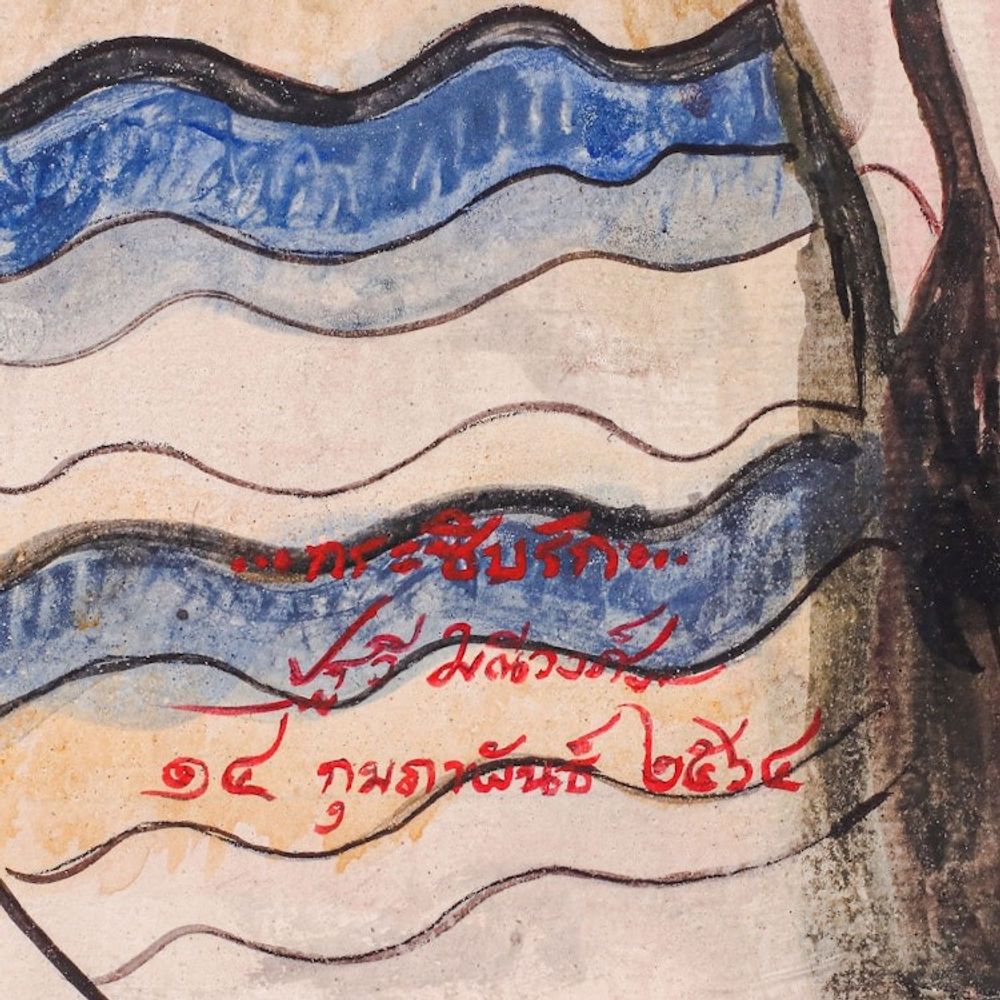 ...กระซิบรัก...
มณีวงศ์
๑๔ กุมภาพันธ์ ๒๕๖๔